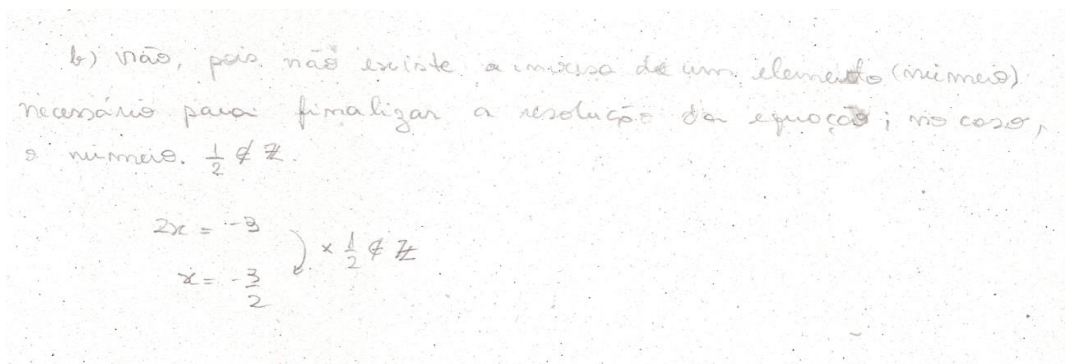 b) não, pois não existe a inversa de um elemento (número)
necessário para finalizar a resolução da equação; no caso,
o número. 1/2 ∉ ℤ.
2x = -3
x = -3/2
× 1/2 ∉ ℤ